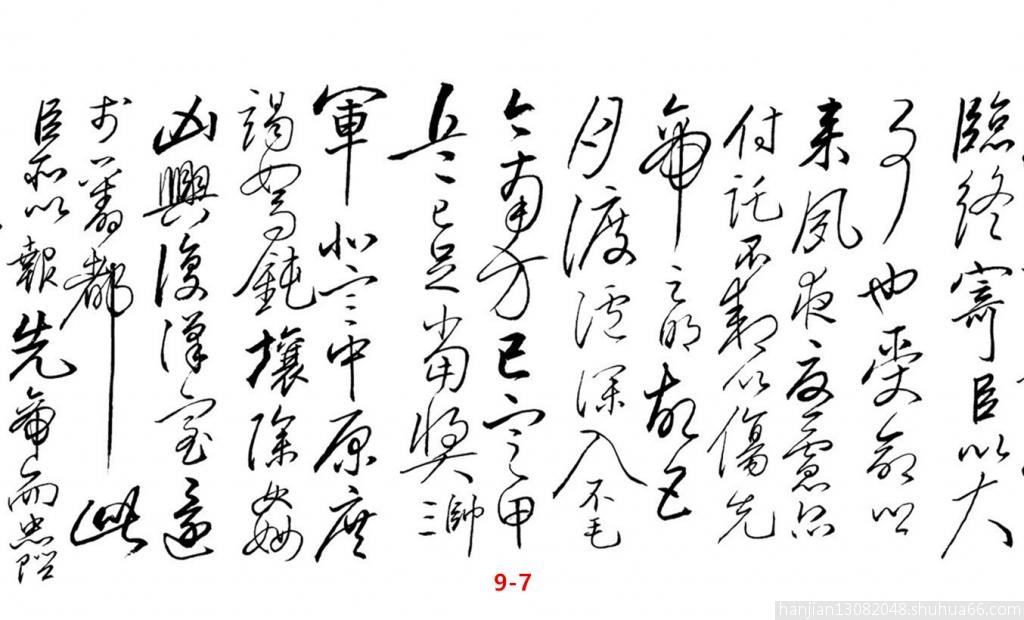 臨終寄臣以大
事也受命以
来夙夜憂慮恐
付託不效以傷先
帝之明故五
月渡瀘深入不毛
今南方已定甲
兵已足當奬帥三
軍北定中原庶
竭駑鈍攘除姦
凶興復漢室還
於舊都此
臣所以報先帝而忠陛
9-7
hanjian13082048.shuhua66.com